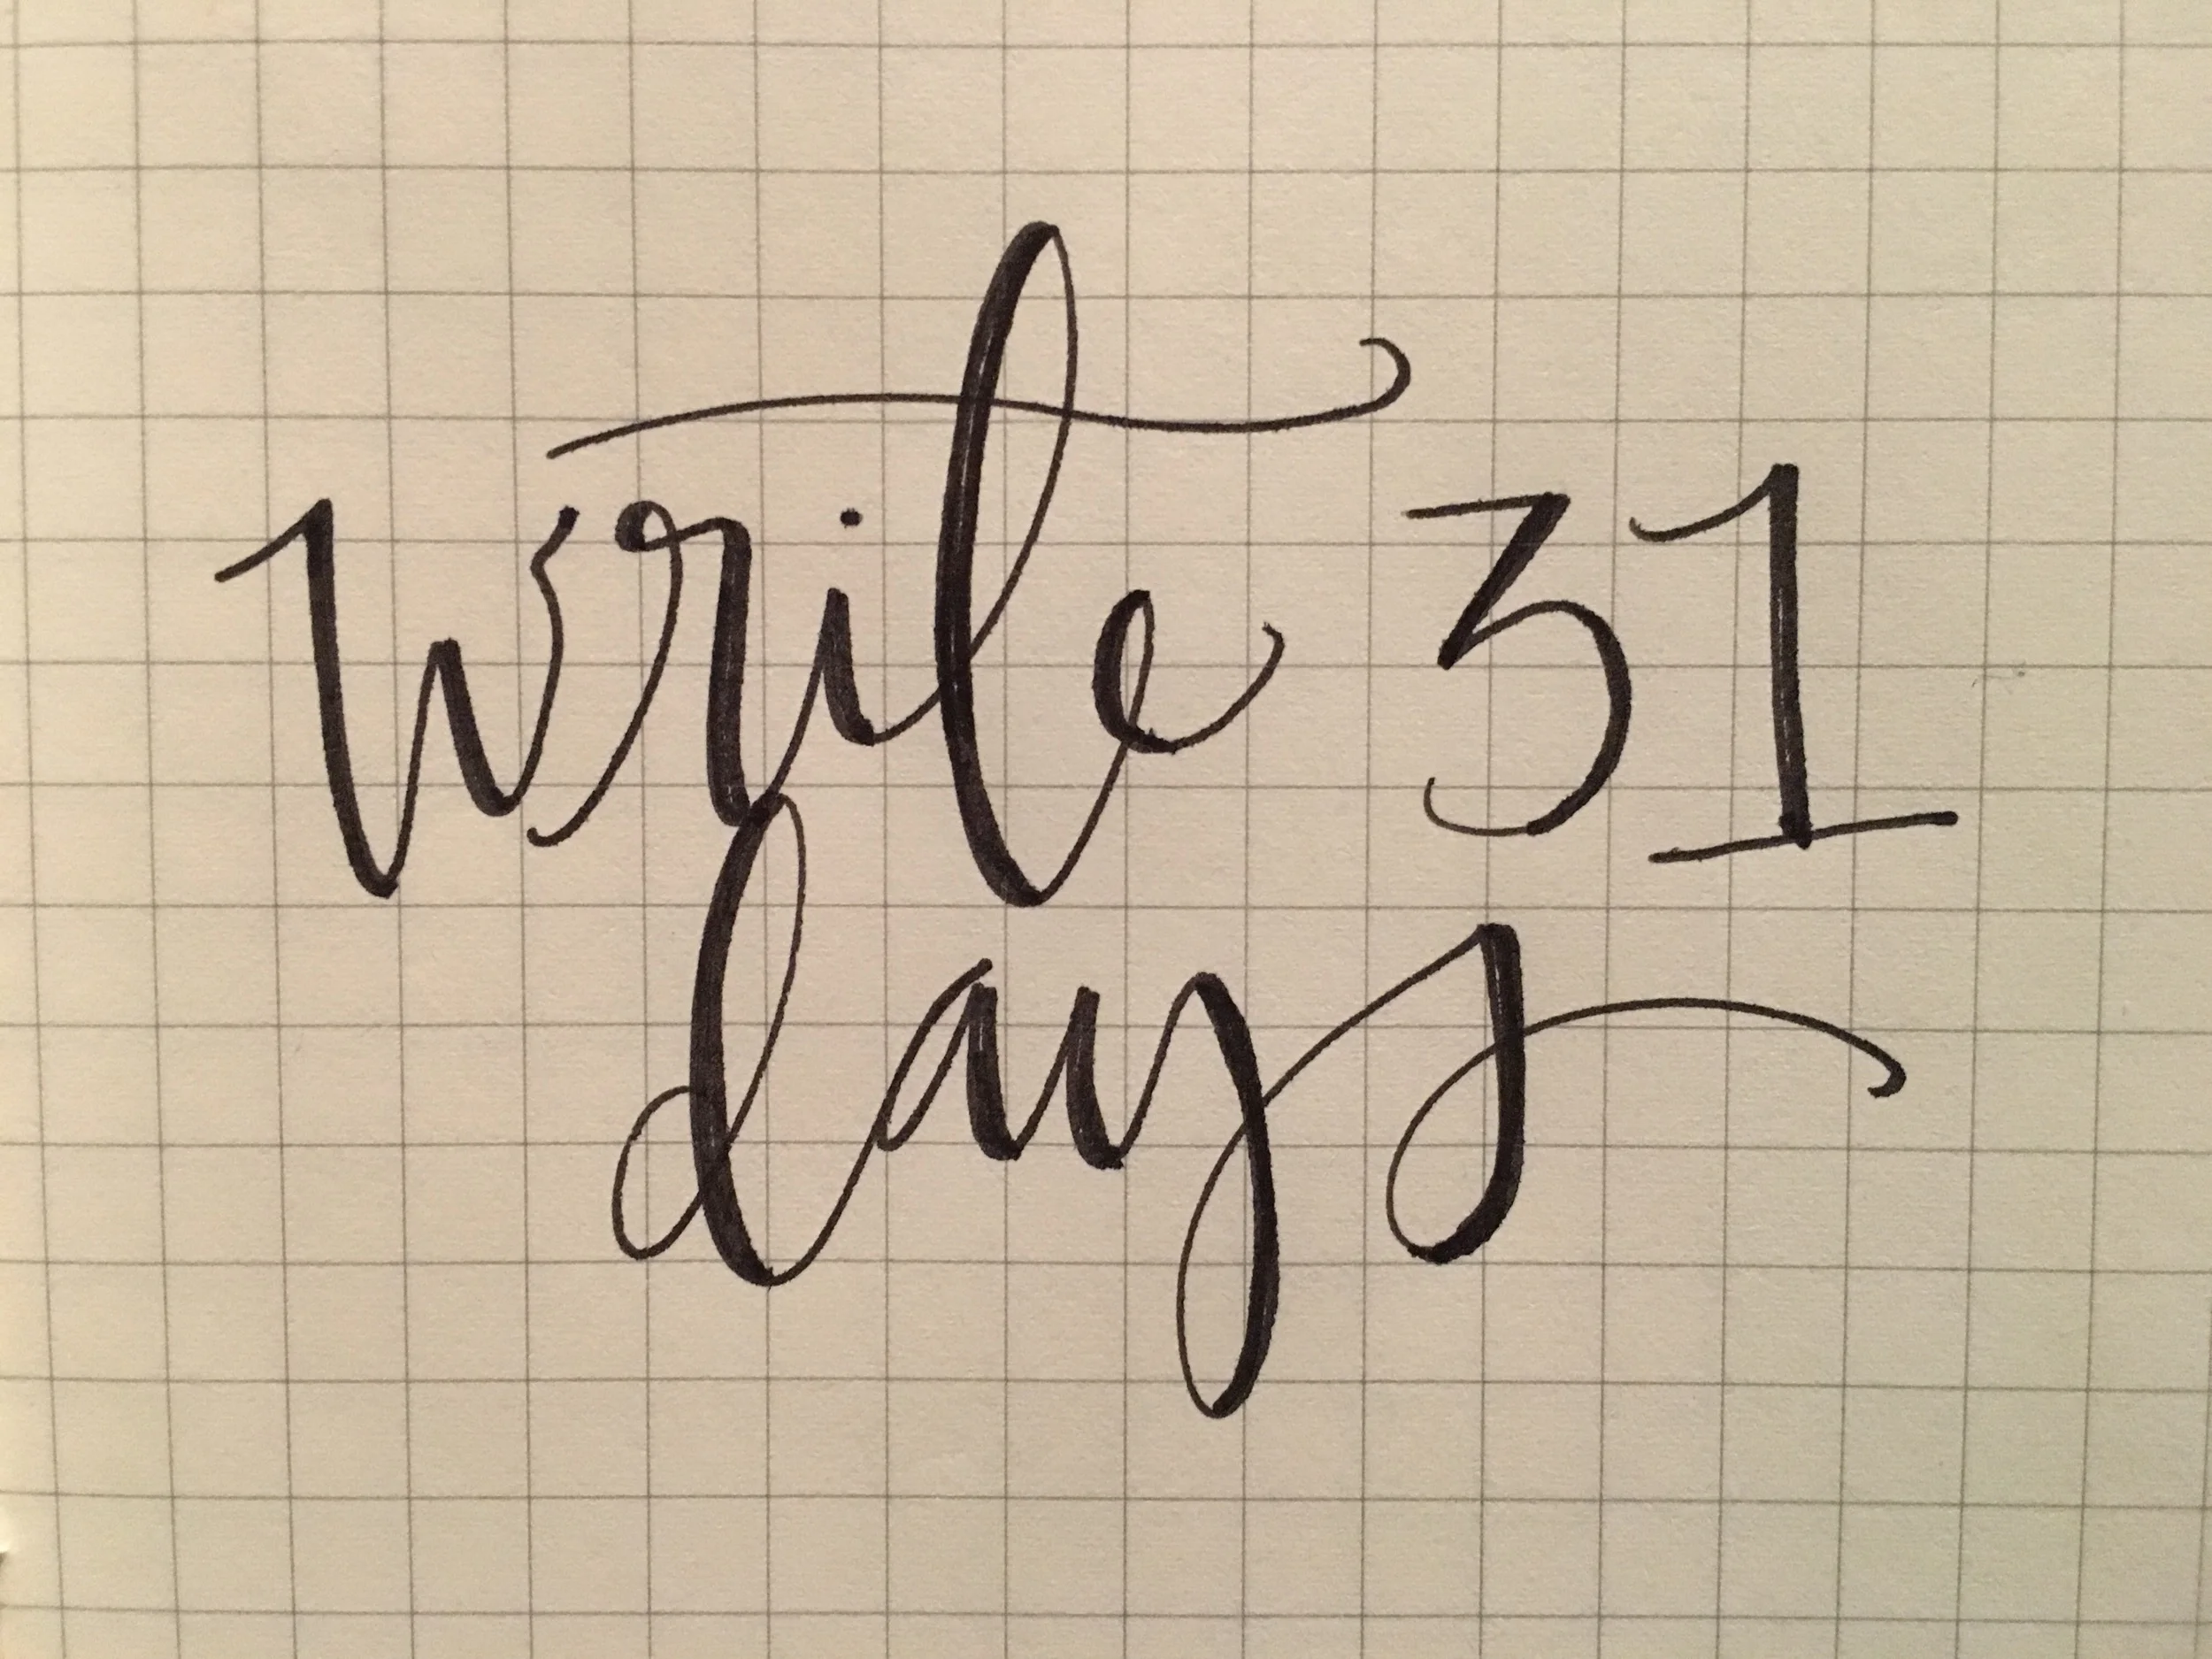 write 31
days